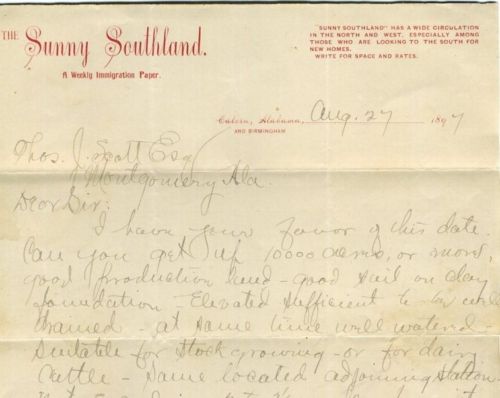 THE Sunny Southland.
A Weekly Immigration Paper.
"SUNNY SOUTHLAND" HAS A WIDE CIRCULATION
IN THE NORTH AND WEST, ESPECIALLY AMONG
THOSE WHO ARE LOOKING TO THE SOUTH FOR
NEW HOMES.
WRITE FOR SPACE AND RATES.
Calera, Alabama, Aug. 27 1897
AND BIRMINGHAM
Thos. J. Scott Esq
Montgomery Ala.
Dear Sir:
I have your favor of this date.
Can you get up 10000 acres, or more,
good production land - good soil on clay
foundation - Elevated sufficient to be well
drained - at same time well watered -
Suitable for Stock growing - or for dairy
Cattle - Same located adjoining Station